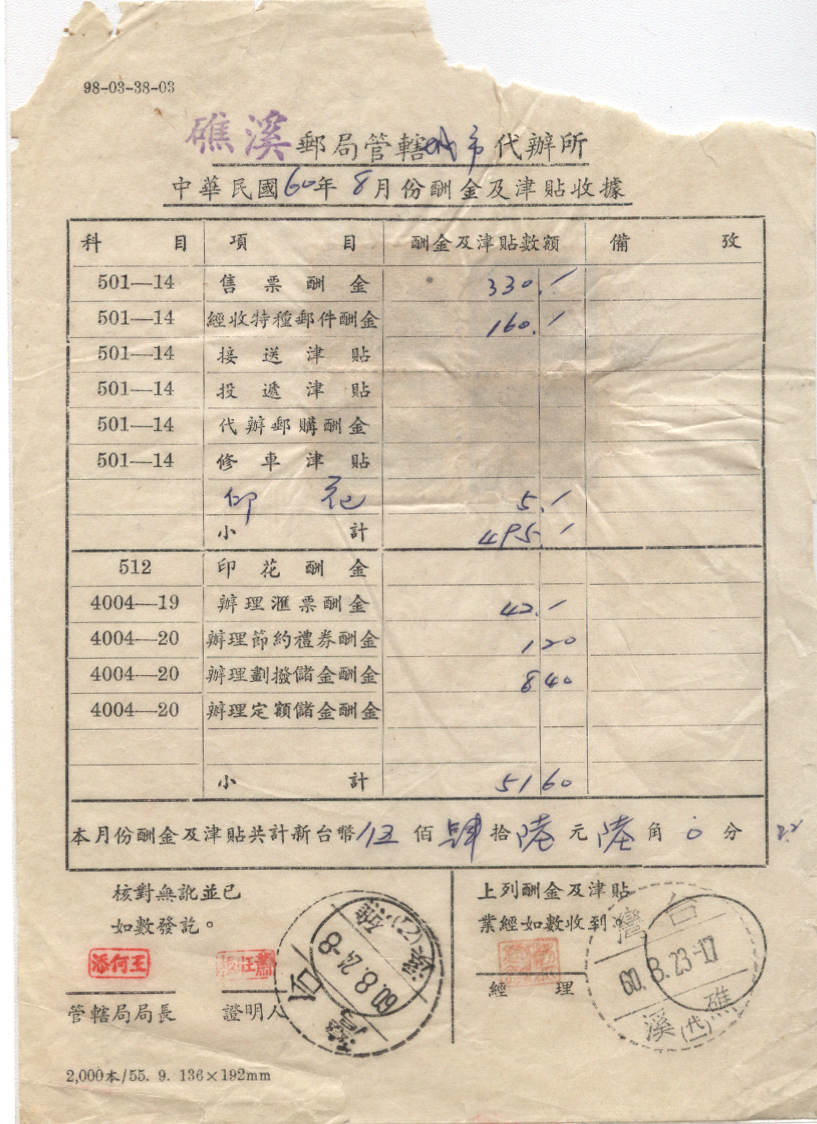 98-03-38-03
礁溪郵局管轄城市代辦所
中華民國60年8月份酬金及津貼收據
科目 項目 酬金及津貼數額 備攷
501—14 售票酬金 330./
501—14 經收特種郵件酬金 160./
501—14 接送津貼
501—14 投遞津貼
501—14 代辦郵購酬金
501—14 修車津貼
印花 5./
小計 495./
512 印花酬金
4004—19 辦理滙票酬金 42./
4004—20 辦理節約禮券酬金 1 20
4004—20 辦理劃撥儲金酬金 8 40
4004—20 辦理定額儲金酬金
小計 51 60
本月份酬金及津貼共計新台幣伍佰肆拾陸元陸角0分
核對無訛並已
如數發訖。
潘何王
管轄局局長 證明人
上列酬金及津貼
業經如數收到。
經理
台灣
60.8.24-8
礁溪(2)
台灣
60.8.23-17
礁溪(代)
2,000本/55. 9. 136×192mm